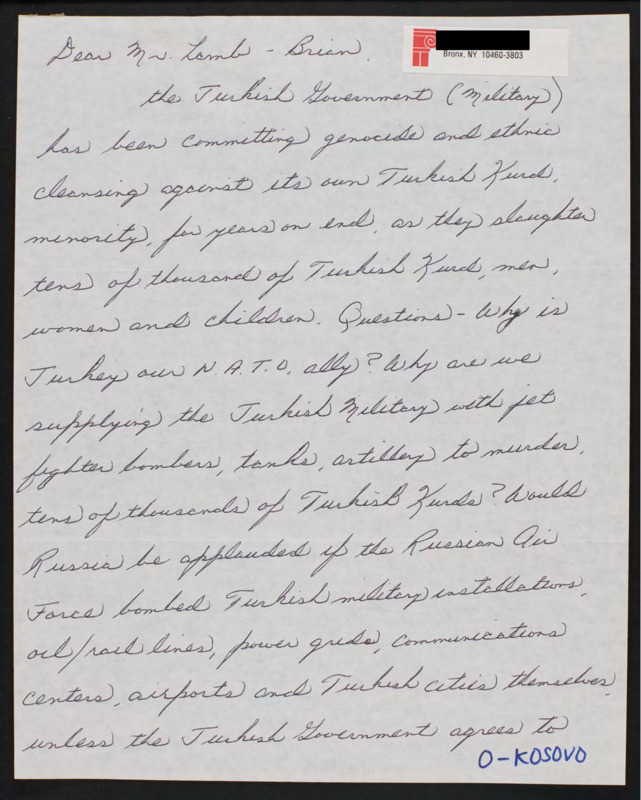 Dear Mr. Lamb - Brian,
Bronx, NY 10460-3803
the Turkish Government (Military)
has been committing genocide and ethnic
cleansing against its own Turkish Kurd,
minority, for years on end, as they slaughter
tens of thousand of Turkish Kurd, men,
women and children. Questions - Why is
Turkey our N.A.T.O. ally? Why are we
supplying the Turkish Military with jet
fighter bombers, tanks, artillery to murder,
tens of thousands of Turkish Kurds? Would
Russia be applauded if the Russian Air
Force bombed Turkish military installations,
oil/rail lines, power grids, communications
centers, airports and Turkish cities themselves,
unless the Turkish Government agrees to
O-KOSOVO